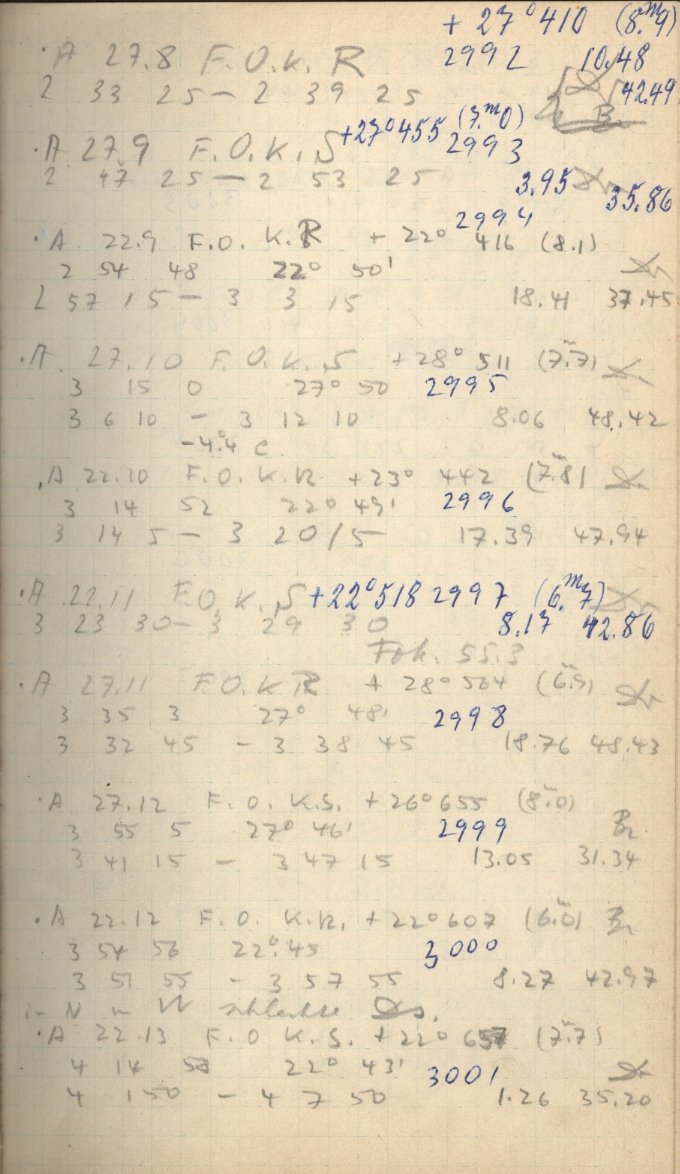 + 27° 410 (8.ᵐ9)
· A 27.8 F.O.K. R 2992 10.48
2 33 25 – 2 39 25 42.49
+27° 455 (7.ᵐ0)
· A 27.9 F.O.K. S 2993
2 47 25 – 2 53 25 3.95 35.86
2994
· A 22.9 F.O. K.R + 22° 416 (8.1)
2 54 48 22° 50'
2 57 15 – 3 3 15 18.41 37.45
· A 27.10 F.O.K.S +28° 511 (7.ᵐ7)
3 15 0 27° 50 2995
3 6 10 – 3 12 10 8.06 48.42
-4.°4 C
· A 22.10 F.O.K.R +23° 442 (7.ᵐ8)
3 14 52 22° 49' 2996
3 14 5 – 3 20 15 17.39 47.94
· A 22.11 F.O.K.S +22° 518 2997 (6.ᵐ7)
3 23 30 – 3 29 30 8.17 42.86
Fok. 55.3
· A 27.11 F.O.K R + 28° 564 (6.ᵐ9)
3 35 3 27° 48' 2998
3 32 45 – 3 38 45 18.76 48.43
· A 27.12 F.O. K.S. +26° 655 (8.ᵐ0)
3 55 5 27° 46' 2999
3 41 15 – 3 47 15 13.05 31.34
· A 22.12 F.O. K.R. +22° 607 (6.ᵐ0)
3 54 56 22° 45 3000
3 51 55 – 3 57 55 8.27 42.97
in N in W schlechte
· A 22.13 F.O K.S. +22° 657 (7.ᵐ7)
4 14 58 22° 43' 3001
4 1 50 – 4 7 50 1.26 35.20